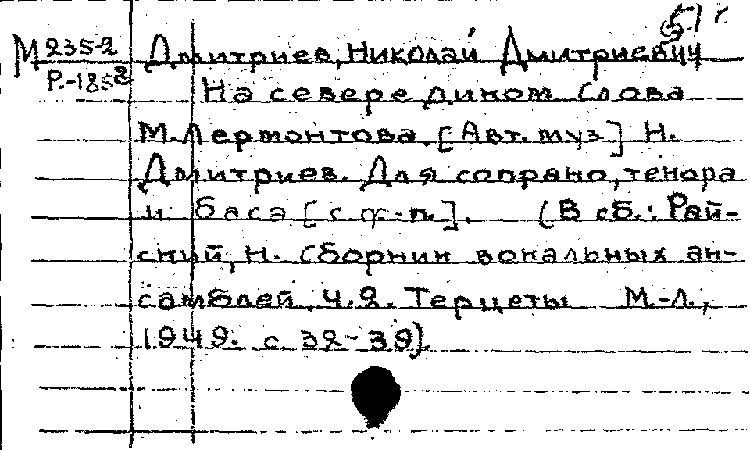 51 г.
М 235-2 Дмитриев, Николай Дмитриевич
Р-1858 На севере диком Слова
М. Лермонтова. [Авт. муз.] Н.
Дмитриев. Для сопрано, тенора
и баса [с ф-п.]. (В сб.: Рай-
ский, Н. Сборник вокальных ан-
самблей, ч. 2. Терцеты М.-Л.,
1949. с 32-39).